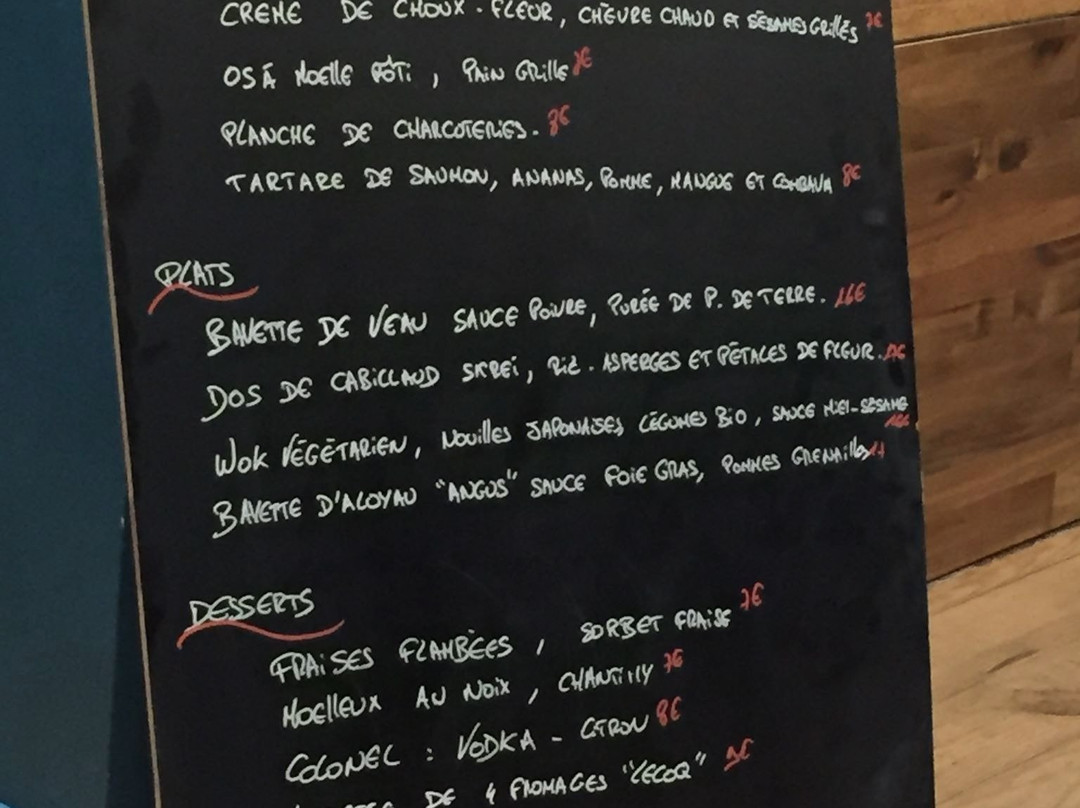 CREME DE CHOUX-FLEUR, CHÈVRE CHAUD ET SÉSAMES GRILLÉS 7€
OS À MOELLE RÔTI, PAIN GRILLE 7€
PLANCHE DE CHARCUTERIES. 8€
TARTARE DE SAUMON, ANANAS, POMME, MANGUE ET COMBAVA 8€
PLATS
BAVETTE DE VEAU SAUCE POIVRE, PURÉE DE P. DE TERRE. 16€
DOS DE CABILLAUD SKREÏ, RIZ. ASPERGES ET PÉTALES DE FLEUR.
WOK VÉGÉTARIEN, NOUILLES JAPONAISES, LÉGUMES BIO, SAUCE MIEL-SÉSAME
BAVETTE D'ALOYAU "ANGUS" SAUCE FOIE GRAS, POMMES GRENAILLES
DESSERTS
FRAISES FLAMBÉES, SORBET FRAISE 7€
MOELLEUX AU NOIX, CHANTILLY 7€
COLONEL : VODKA - CITRON 8€
DE 4 FROMAGES "LECOQ"